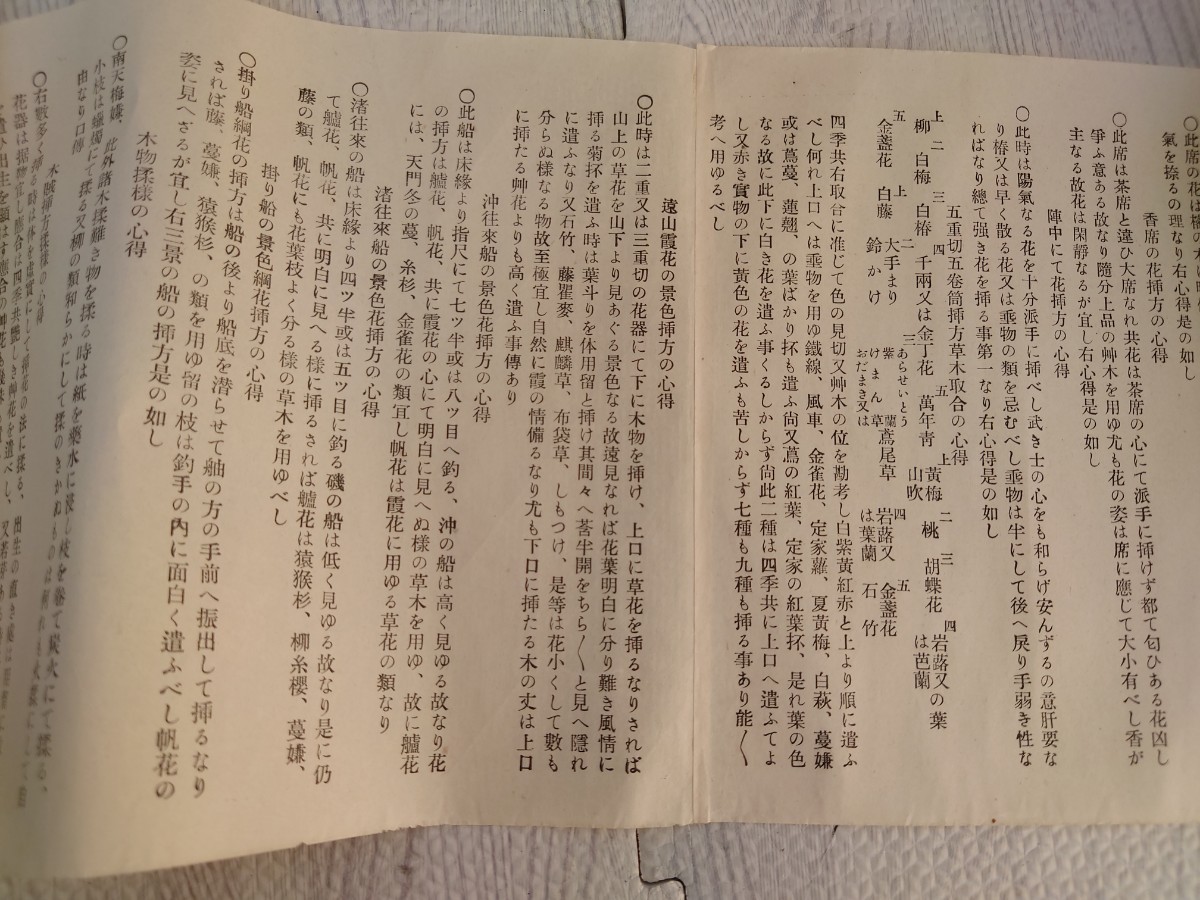 氣を捺るの理なり右心得是の如し
香席の花挿方の心得
〇此席は茶席と違ひ大席なれ共花は茶席の心にて派手に挿けず都て匂ひある花凶し
爭ふ意ある故なり隨分上品の艸木を用ゆ尤も花の姿は席に應じて大小有べし香が
主なる故花は閑靜なるが宜し右心得是の如し
陣中にて花挿方の心得
〇此時は陽氣なる花を十分派手に挿べし武き士の心をも和らげ安んずるの意肝要な
り椿又は早く散る花又は垂物の類を忌むべし垂物は半にして後へ戻り手弱き性な
ればなり總て强き花を挿る事第一なり右心得是の如し
五重切五卷筒挿方草木取合の心得
上 柳 二 白梅 三 白椿 四 千兩又は金丁花 五 萬年靑 上 黃梅 山吹 二 桃 三 胡蝶花 四 岩蕗又の葉は芭蘭
五 金盞花 上 白藤 二 大手まり 鈴かけ 三 あらせいとう 紫蘭 けまん草 おだまき又は 鳶尾草 四 岩蕗又は葉蘭 五 金盞花 石竹
四季共右取合に准じて色の見切又艸木の位を勘考し白紫黃紅赤と上より順に遣ふ
べし何れ上口へは垂物を用ゆ鐵線、風車、金雀花、定家蘿、夏黃梅、白萩、蔓嫌
或は蔦蔓、蓮翹、の葉ばかり抔も遣ふ尙又蔦の紅葉、定家の紅葉抔、是れ葉の色
なる故に此下に白き花を遣ふ事くるしからず尙此二種は四季共に上口へ遣ふてよ
し又赤き實物の下に黃色の花を遣ふも苦しからず七種も九種も挿る事あり能〱
考へ用ゆるべし
遠山霞花の景色挿方の心得
〇此時は二重又は三重切の花器にて下に木物を挿け、上口に草花を挿るなりされば
山上の草花を山下より見あぐる景色なる故遠見なれば花葉明白に分り難き風情に
挿る菊抔を遣ふ時は葉斗りを体用留と挿け其間々へ莟半開をちら〱と見へ隱れ
に遣ふなり又石竹、藤瞿麥、麒麟草、布袋草、しもつけ、是等は花小くして數も
分らぬ樣なる物故至極宜し自然に霞の情備るなり尤も下口に挿たる木の丈は上口
に挿たる艸花よりも高く遣ふ事傳あり
沖往來の船の景色花挿方の心得
〇此船は床緣より指尺にて七ツ半或は八ツ目へ釣る、沖の船は高く見ゆる故なり花
の挿方は艫花、帆花、共に霞花の心にて明白に見へぬ樣の草木を用ゆ、故に艫花
には、天門冬の蔓、糸杉、金雀花の類宜し帆花は霞花に用ゆる草花の類なり
渚往來船の景色花挿方の心得
〇渚往來の船は床緣より四ツ半或は五ツ目に釣る磯の船は低く見ゆる故なり是に仍
て艫花、帆花、共に明白に見へる樣に挿るされば艫花は猿猴杉、柳糸櫻、蔓嫌、
藤の類、帆花にも花葉枝よく分る樣の草木を用ゆべし
掛り船の景色綱花挿方の心得
〇掛り船綱花の挿方は船の後より船底を潜らせて舳の方の手前へ振出して挿るなり
されば藤、蔓嫌、猿猴杉、の類を用ゆ留の枝は釣手の內に面白く遣ふべし帆花の
姿に見へざるが宜し右三景の船の挿方是の如し
木物揉樣の心得
〇南天梅嫌、此外諸木揉難き物を揉る時は紙を藥水に浸し枝を卷て炭火にて揉る、
小枝は蠟燭にて揉る又柳の類和らかにして揉のきかぬものは
由なり口傳